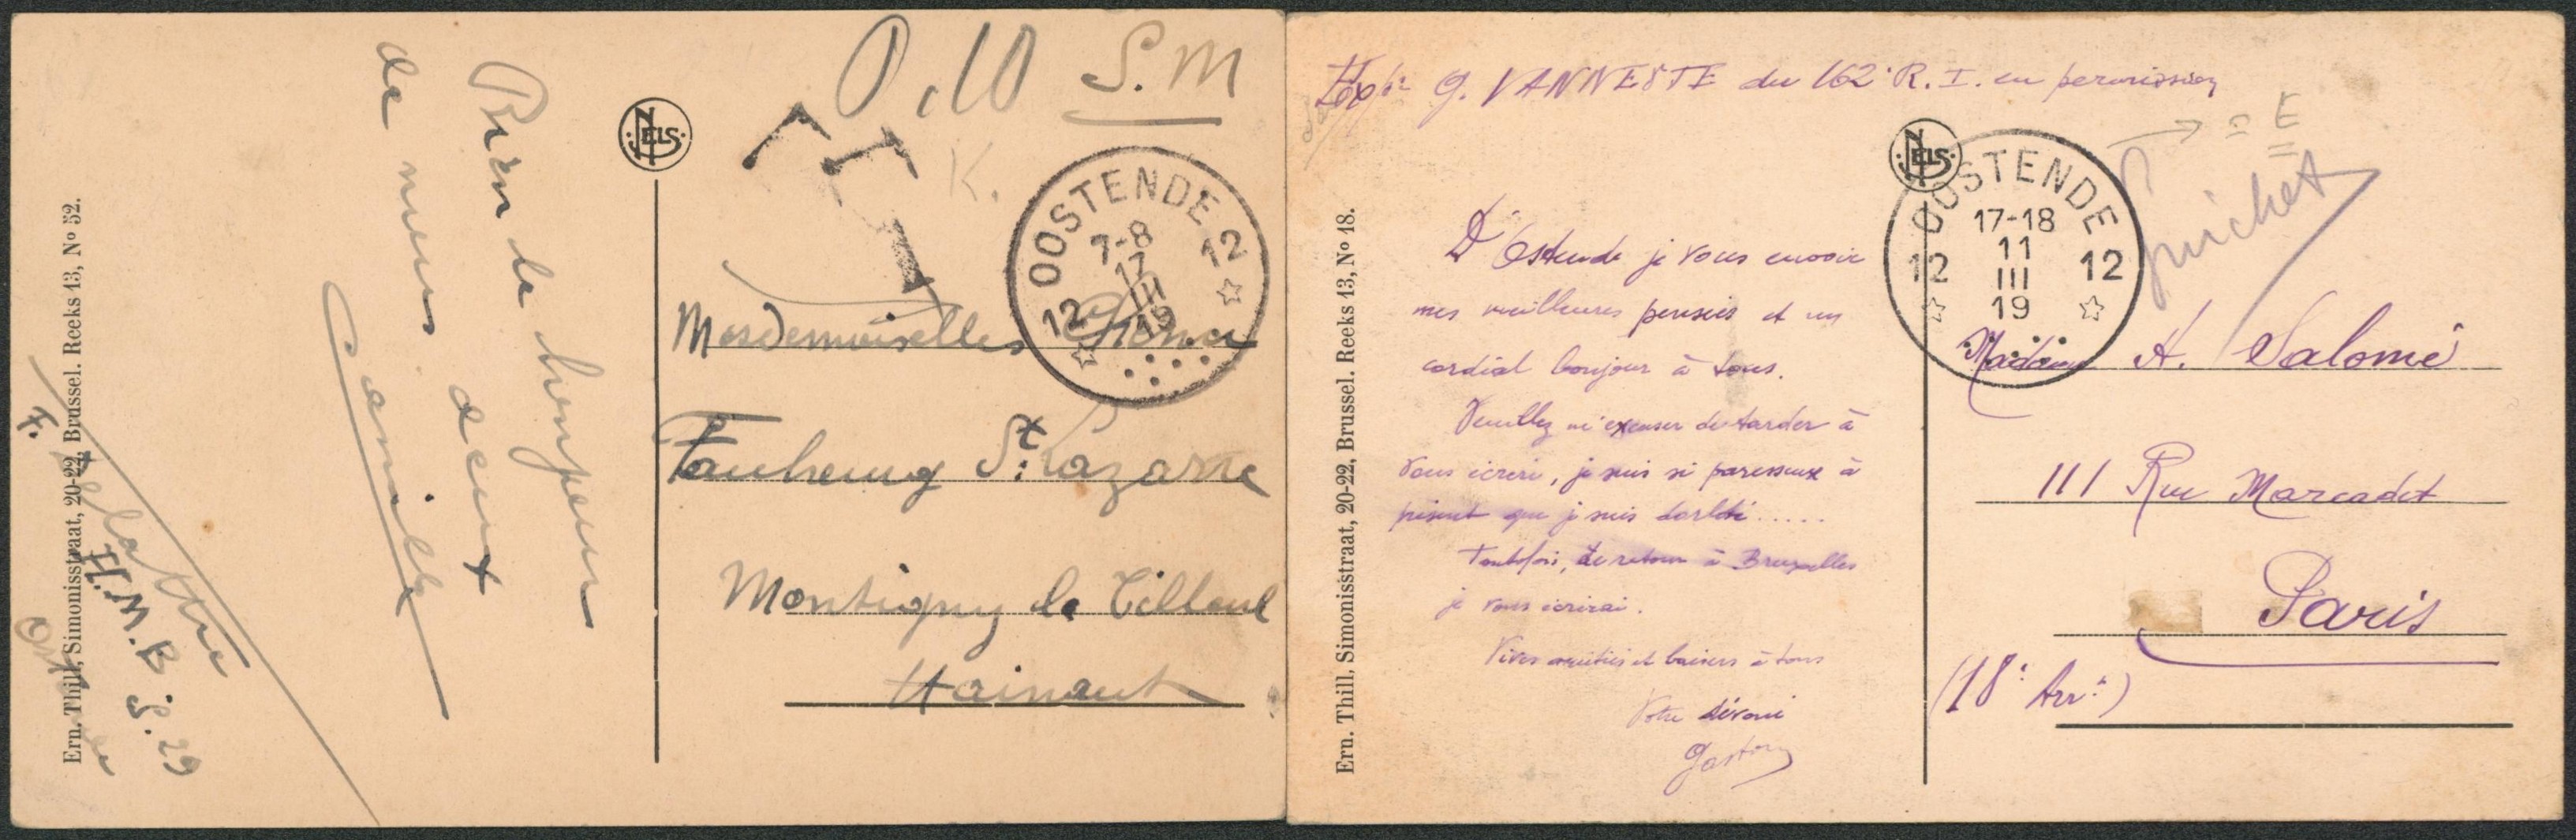 0,10 S.M
T
K.
NELS
OOSTENDE
7-8
17
III
19
12 12
Mesdemoiselles
Faubourg St. Lazare
Montigny le Tilleul
Hainaut
Bien le bonjour
de nous deux
Camille
H.M.B. S. 29
Ern. Thill, Simonisstraat, 20-22, Brussel. Reeks 13, Nº 52.
Expr G. VANNESTE du 162e R.I. en permission
= E
guichet
NELS
OOSTENDE
17-18
11
III
19
12 12
D'Ostende je vous envoie
mes meilleures pensées et un
cordial bonjour à tous.
Veuillez m'excuser de tarder à
vous écrire, je suis si paresseux à
présent que je suis dorloté.....
Toutefois, de retour à Bruxelles
je vous écrirai.
Vives amitiés et baisers à tous
Votre dévoué
Gaston
Madame A. Salomé
111 Rue Marcadet
Paris
(18e Arrt)
Ern. Thill, Simonisstraat, 20-22, Brussel. Reeks 13, Nº 18.